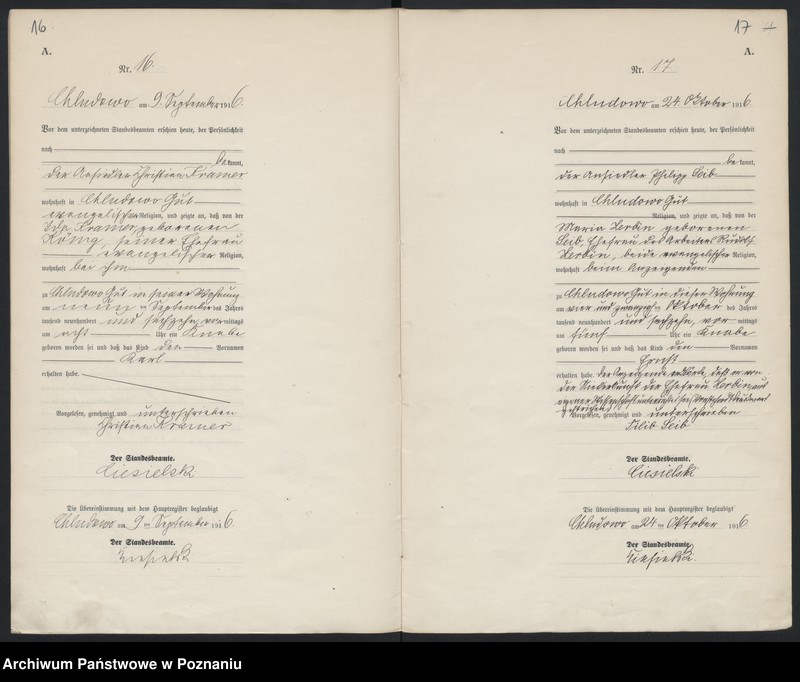 16
A.
Nr. 16.
Chludowo am 9. September 1916.
Vor dem unterzeichneten Standesbeamten erschien heute, der Persönlichkeit
nach
bekannt,
der Ansiedler Christian Kramer
wohnhaft in Chludowo Gut
evangelischer Religion, und zeigte an, daß von der
Kramer geborenen
König, seiner Ehefrau
evangelischer Religion,
wohnhaft bei ihm
zu Chludowo Gut in seiner Wohnung
am neun ten September des Jahres
tausend neunhundert und sechzehn, vormittags
um acht Uhr ein Knabe
geboren worden sei und daß das Kind den Vornamen
Karl
erhalten habe.
Vorgelesen, genehmigt und unterschrieben
Christian Kramer
Der Standesbeamte.
Ciesielski
Die Übereinstimmung mit dem Hauptregister beglaubigt
Chludowo am 9 ten September 1916.
Der Standesbeamte.
Ciesielski
17
A.
Nr. 17
Chludowo am 24. Oktober 1916.
Vor dem unterzeichneten Standesbeamten erschien heute, der Persönlichkeit
nach
bekannt,
der Ansiedler Philipp Seib
wohnhaft in Chludowo Gut
Religion, und zeigte an, daß von der
Maria geborenen
Seib, Ehefrau des Arbeiters Rudolf
beide evangelischer Religion,
wohnhaft beim Anzeigenden
zu Chludowo Gut in dieser Wohnung
am vier und zwanzigsten Oktober des Jahres
tausend neunhundert und sechzehn, vormittags
um fünf Uhr ein Knabe
geboren worden sei und daß das Kind den Vornamen
Ernst
erhalten habe. Der Anzeigende erklärte, daß er von
der Niederkunft der Ehefrau aus
eigener Wissenschaft unterrichtet sei.
gestrichen. Vorgelesen, genehmigt und unterschrieben
Filib Seib
Der Standesbeamte.
Ciesielski
Die Übereinstimmung mit dem Hauptregister beglaubigt
Chludowo am 24 ten Oktober 1916
Der Standesbeamte.
Ciesielski.
Archiwum Państwowe w Poznaniu